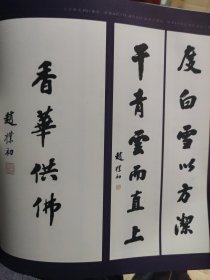 度白雪以方潔
干青雲而直上
趙樸初
香華供佛
趙樸初